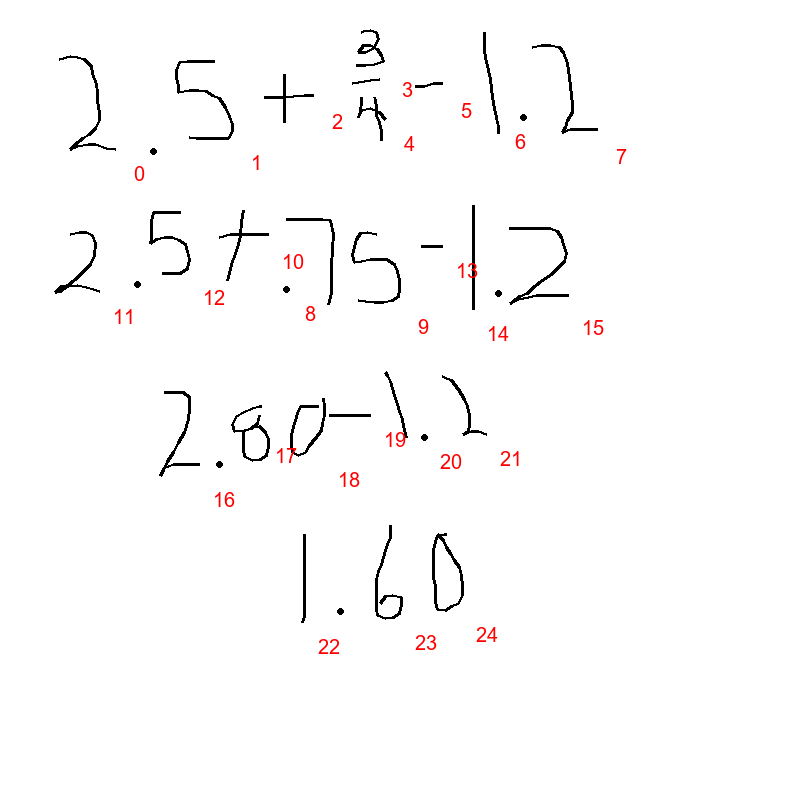 2.5 + 3/4 - 1.2
0 1 2 3 4 5 6 7
2.5 + .75 - 1.2
11 12 10 8 9 13 14 15
2.80 - 1.2
16 17 18 19 20 21
1.60
22 23 24